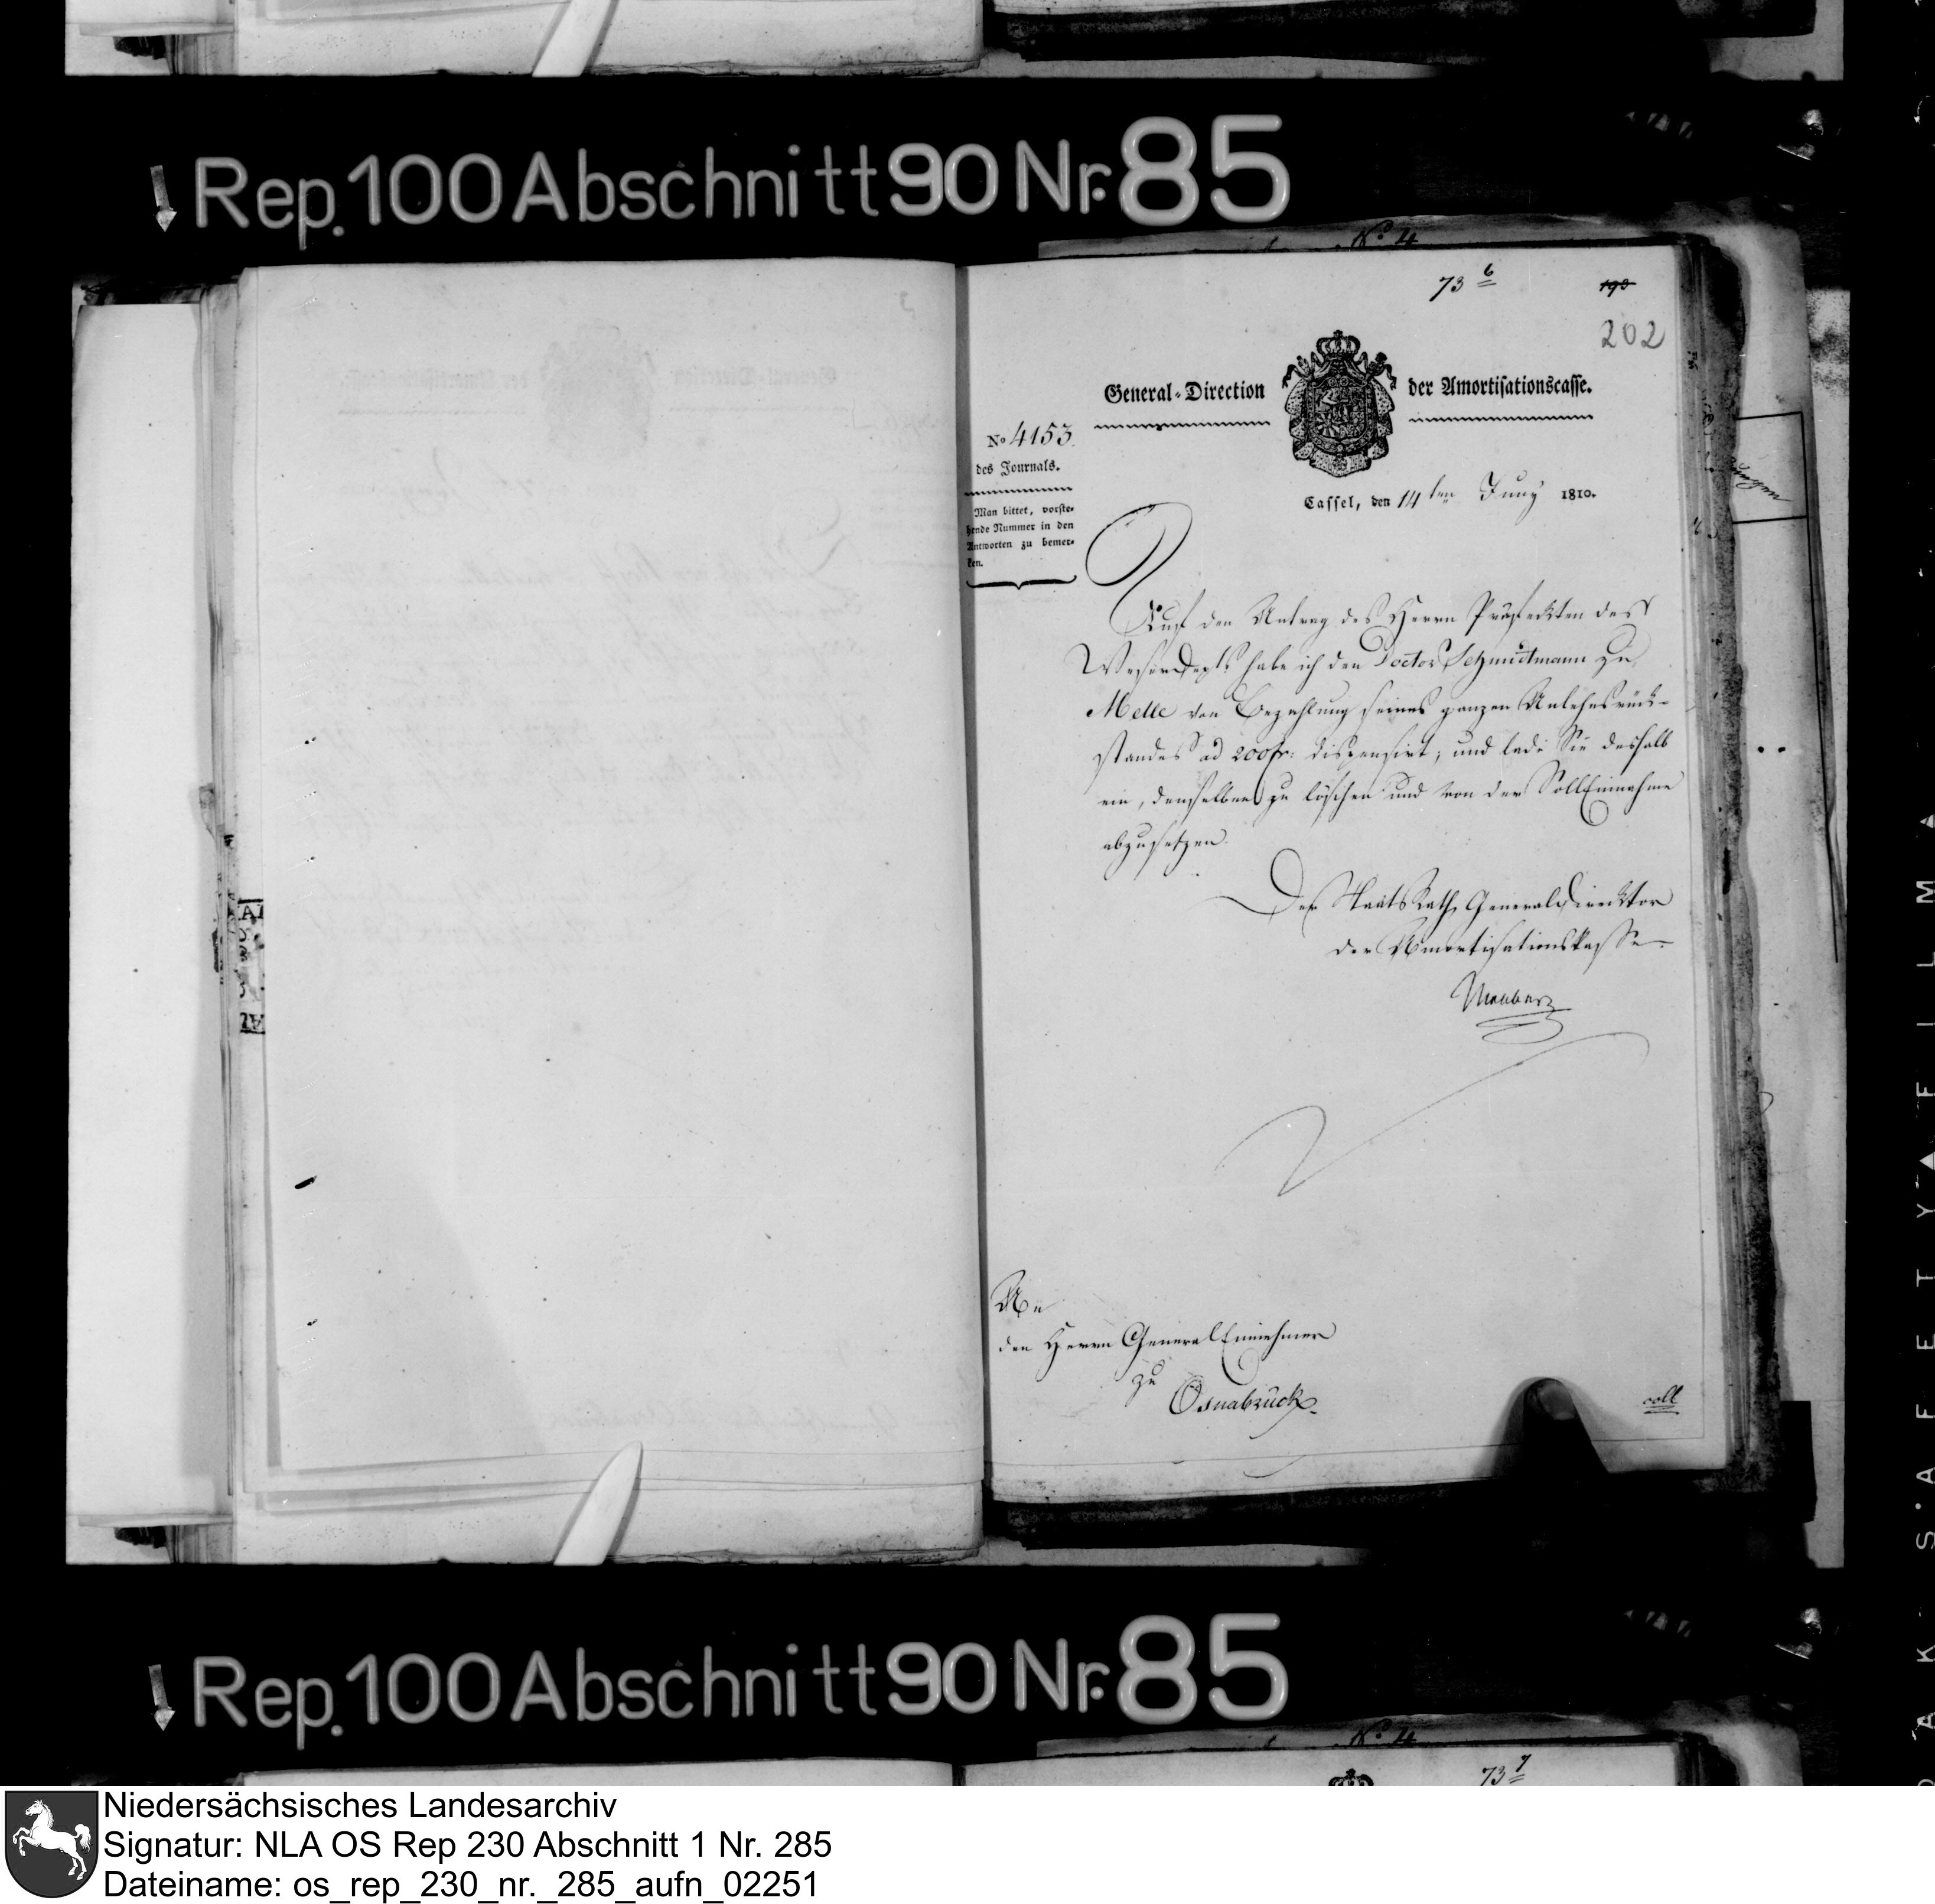 Nº 4
Rep. 100 Abschnitt 90 Nr. 85
73 6
190
202
General-Direction der Amortisationscasse.
Nº 4153.
des Journals.
Man bittet, vorste-
hende Nummer in den
Antworten zu bemer-
ken.
Cassel, den 14ten Juny 1810.
Auf den Antrag des Herrn Präfeckten des
Weserdepts habe ich den Doctor Schmidtmann zu
Melle von Bezahlung seines ganzen Anlehnsrück-
standes ad 200 fr: dispensirt, und lade Sie deshalb
ein, denselben zu löschen und von der SollEinnahme
abzusetzen.
Der StaatsRath, Generaldirecktor
der Amortisationskasse
An
den Herrn GeneralEinnehmer
zu
Osnabrück.
coll
Rep. 100 Abschnitt 90 Nr. 85
Nº 4
73 7
SAFETY FILM
Niedersächsisches Landesarchiv
Signatur: NLA OS Rep 230 Abschnitt 1 Nr. 285
Dateiname: os_rep_230_nr._285_aufn_02251